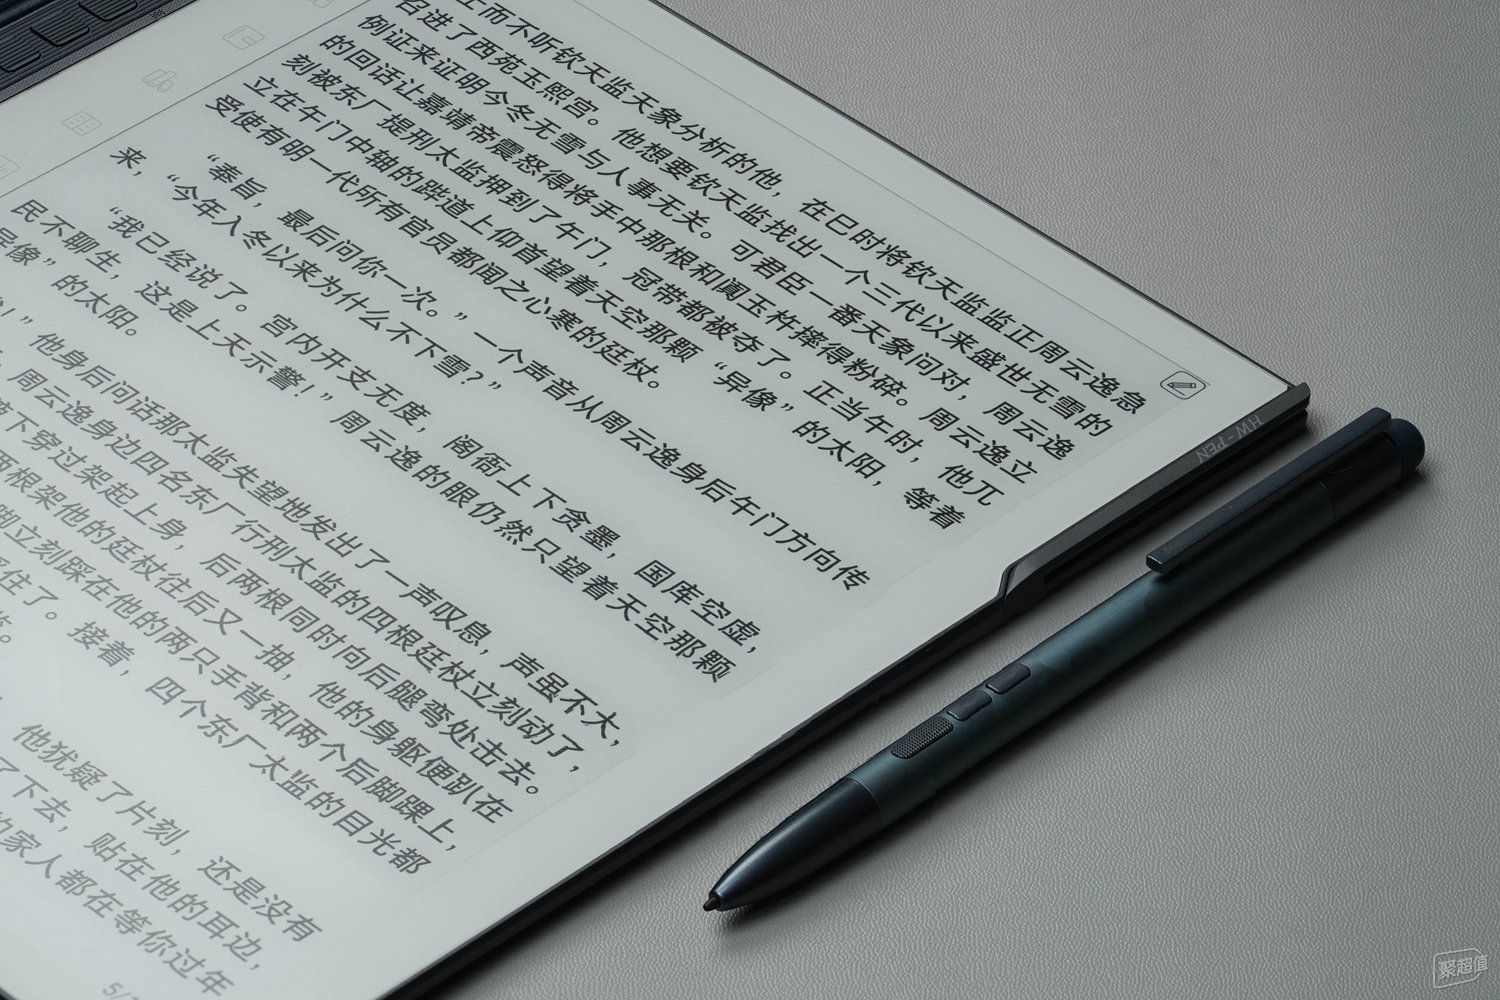 而不听钦天监天象分析的他，在巳时将钦天监监正周云逸急
召进了西苑玉熙宫。他想要钦天监找出一个三代以来盛世无雪的
例证来证明今冬无雪与人事无关。可君臣一番天象问对，周云逸
的回话让嘉靖帝震怒得将手中那根和阗玉杵摔得粉碎。周云逸立
刻被东厂提刑太监押到了午门，冠带都被夺了。正当午时，他兀
立在午门中轴的跸道上仰首望着天空那颗“异像”的太阳，等着
受使有明一代所有官员都闻之心寒的廷杖。
“奉旨，最后问你一次。”一个声音从周云逸身后午门方向传
来，“今年入冬以来为什么不下雪？”
“我已经说了。宫内开支无度，阁衙上下贪墨，国库空虚，
民不聊生，这是上天示警！”周云逸的眼仍然只望着天空那颗
异像”的太阳。
！”他身后问话那太监失望地发出了一声叹息，声虽不大，
周云逸身边四名东厂行刑太监的四根廷杖立刻动了，
下穿过架起上身，后两根同时向后腿弯处击去。
两根架他的廷杖往后又一抽，他的身躯便趴在
脚立刻踩在他的两只手背和两个后脚踝上，
住了。接着，四个东厂太监的目光都
他犹疑了片刻，还是没有
了下去，贴在他的耳边，
的家人都在等你过年
5/
HW-PEN
聚超值